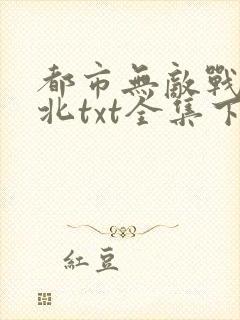 都市無敵戰
北txt全集下
紅豆